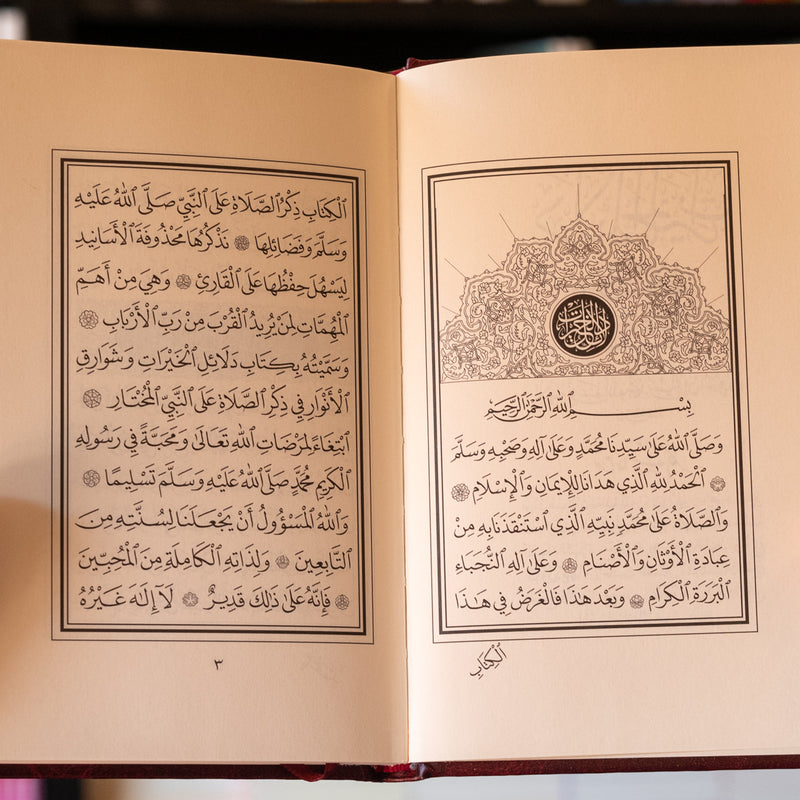 دلائل الخيرات
بِسْمِ ٱللَّهِ ٱلرَّحْمَٰنِ ٱلرَّحِيمِ
وَصَلَّى ٱللَّهُ عَلَىٰ سَيِّدِنَا مُحَمَّدٍ وَعَلَىٰ آلِهِ وَصَحْبِهِ وَسَلَّمَ
ٱلْحَمْدُ لِلَّهِ ٱلَّذِي هَدَانَا لِلْإِيمَانِ وَٱلْإِسْلَامِ
وَٱلصَّلَاةُ عَلَىٰ مُحَمَّدٍ نَبِيِّهِ ٱلَّذِي ٱسْتَنْقَذَنَا بِهِ مِنْ
عِبَادَةِ ٱلْأَوْثَانِ وَٱلْأَصْنَامِ وَعَلَىٰ آلِهِ ٱلنُّجَبَاءِ
ٱلْبَرَرَةِ ٱلْكِرَامِ وَبَعْدَ هَٰذَا فَٱلْغَرَضُ فِي هَٰذَا
ٱلْكِتَابِ
ٱلْكِتَابِ ذِكْرُ ٱلصَّلَاةِ عَلَى ٱلنَّبِيِّ صَلَّى ٱللَّهُ عَلَيْهِ
وَسَلَّمَ وَفَضَائِلِهَا نَذْكُرُهَا مَحْذُوفَةَ ٱلْأَسَانِيدِ
لِيَسْهُلَ حِفْظُهَا عَلَى ٱلْقَارِئِ وَهِيَ مِنْ أَهَمِّ
ٱلْمُهِمَّاتِ لِمَنْ يُرِيدُ ٱلْقُرْبَ مِنْ رَبِّ ٱلْأَرْبَابِ
وَسَمَّيْتُهُ بِكِتَابِ دَلَائِلِ ٱلْخَيْرَاتِ وَشَوَارِقِ
ٱلْأَنْوَارِ فِي ذِكْرِ ٱلصَّلَاةِ عَلَى ٱلنَّبِيِّ ٱلْمُخْتَارِ
ٱبْتِغَاءً لِمَرْضَاتِ ٱللَّهِ تَعَالَىٰ وَمَحَبَّةً فِي رَسُولِهِ
ٱلْكَرِيمِ مُحَمَّدٍ صَلَّى ٱللَّهُ عَلَيْهِ وَسَلَّمَ تَسْلِيمًا
وَٱللَّهُ ٱلْمَسْؤُولُ أَنْ يَجْعَلَنَا لِسُنَّتِهِ مِنَ
ٱلتَّابِعِينَ وَلِذَاتِهِ ٱلْكَامِلَةِ مِنَ ٱلْمُحِبِّينَ
فَإِنَّهُ عَلَىٰ ذَٰلِكَ قَدِيرٌ لَا إِلَٰهَ غَيْرُهُ
٣